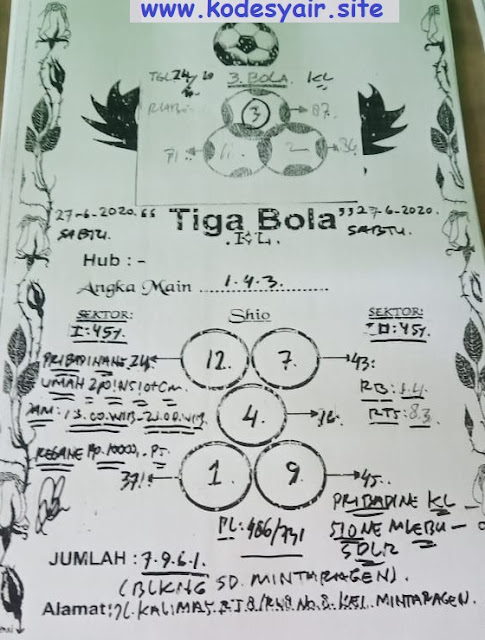 www.kodesyair.site
TGL 24/6 3. BOLA. KL
3 87.
71 11. 2 36
27-6-2020."" Tiga Bola "" 27-6-2020.
SABTU. .KL. SABTU.
Hub : -
Angka Main ........1.4.3...............
SEKTOR: Shio SEKTOR:
I:457. II:457.
PRIBADINANE 24. 12. 7 43.
UMAH
RB: 1.4.
JAM: 13.00.WIB-21.00.WIB 4. 16. RTS: 8.3
REGANE Rp.10000,- PT.
371 1 9 45.
PRIBADINE KL -
PL: 486/731 SIONE MLEBU -
5DLR
JUMLAH : 7.9.6.1.
(BLKNG SD. MINTARAGEN).
Alamat: JL. KALIMAS. RT.8/ No.8. KEL. MINTARAGEN.